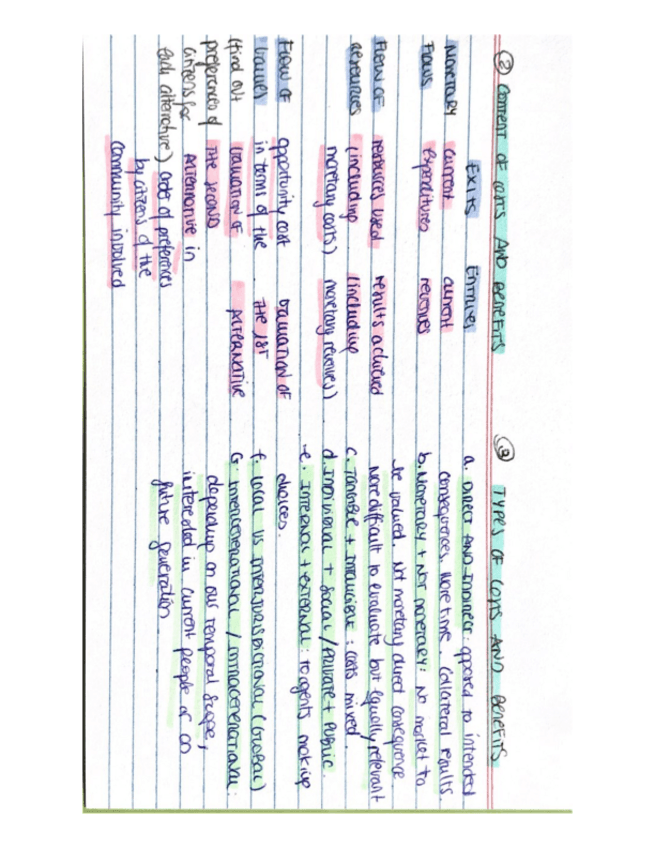 ② CONTENT OF COSTS AND BENEFITS
EXITS ENTRIES
MONETARY current current
FLOWS expenditures revenues
FLOW OF resources used results achieved
RESOURCES (including (including
monetary costs) monetary revenues)
FLOW OF opportunity cost VALUATION OF
VALUES in terms of the THE 1ST
(Find out VALUATION OF ALTERNATIVE
preferences of THE SECOND
citizens for ALTERNATIVE in
each alternative) order of preferences
by citizens of the
community involved
③ TYPES OF COSTS AND BENEFITS
a. DIRECT AND INDIRECT: opposed to intended
consequences. More time. Collateral results.
b. MONETARY + NOT MONETARY: No market to
be valued. Not monetary direct consequence
More difficult to evaluate but equally relevant
c. TANGIBLE + INTANGIBLE: costs mixed.
d. INDIVIDUAL + SOCIAL / PRIVATE + PUBLIC.
e. INTERNAL + EXTERNAL: to agents making
choices.
f. LOCAL VS INTERJURISDICTIONAL (GLOBAL)
G. INTERGENERATIONAL / INTRAGENERATIONAL:
depending on our temporal scope,
interested in current people or on
future generation